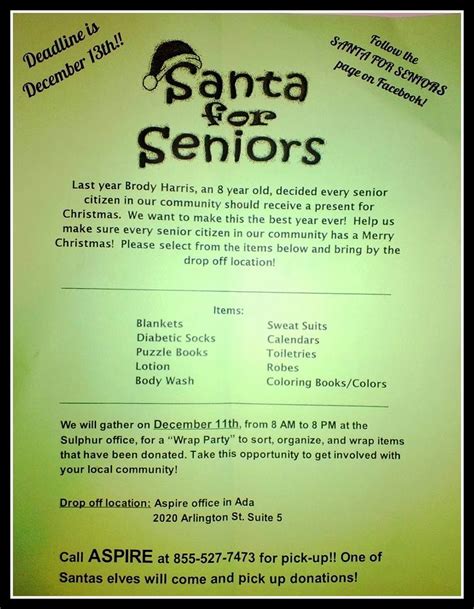 Deadline is
December 13th!!
Follow the
SANTA FOR SENIORS
page on Facebook!
Santa
for
Seniors
Last year Brody Harris, an 8 year old, decided every senior
citizen in our community should receive a present for
Christmas.  We want to make this the best year ever!  Help us
make sure every senior citizen in our community has a Merry
Christmas!  Please select from the items below and bring by the
drop off location!
Items:
Blankets
Diabetic Socks
Puzzle Books
Lotion
Body Wash
Sweat Suits
Calendars
Toiletries
Robes
Coloring Books/Colors
We will gather on December 11th, from 8 AM to 8 PM at the
Sulphur office, for a "Wrap Party" to sort, organize, and wrap items
that have been donated. Take this opportunity to get involved with
your local community!
Drop off location: Aspire office in Ada
2020 Arlington St. Suite 5
Call ASPIRE at 855-527-7473 for pick-up!! One of
Santas elves will come and pick up donations!